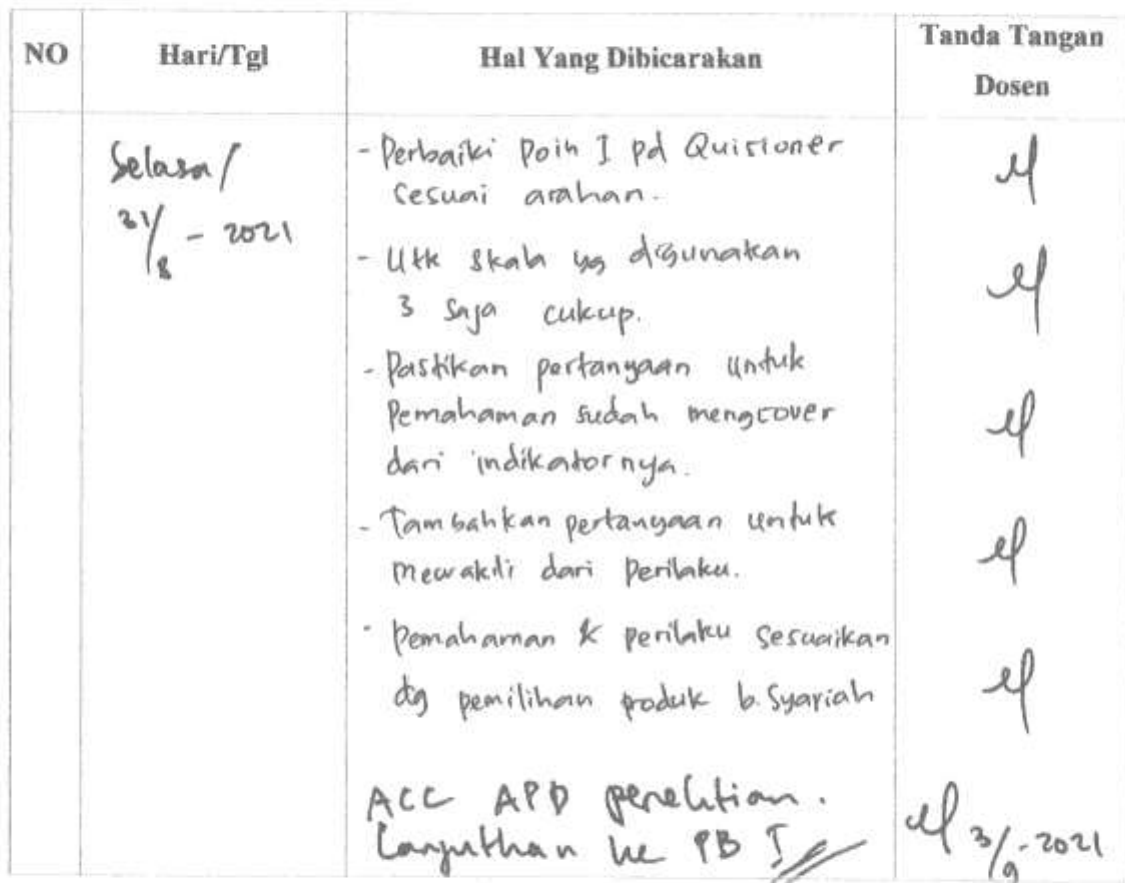 NO Hari/Tgl Hal Yang Dibicarakan Tanda Tangan Dosen
Selasa/
31/8 - 2021
- Perbaiki Poin I pd Quisioner
sesuai arahan.
- Utk skala yg digunakan
3 saja cukup.
- Pastikan pertanyaan untuk
Pemahaman sudah mengcover
dari indikatornya.
- Tambahkan pertanyaan untuk
mewakili dari perilaku.
- Pemahaman & perilaku sesuaikan
dg pemilihan produk b. Syariah
ACC APD penelitian.
Lanjutkan ke PB I
3/9 - 2021